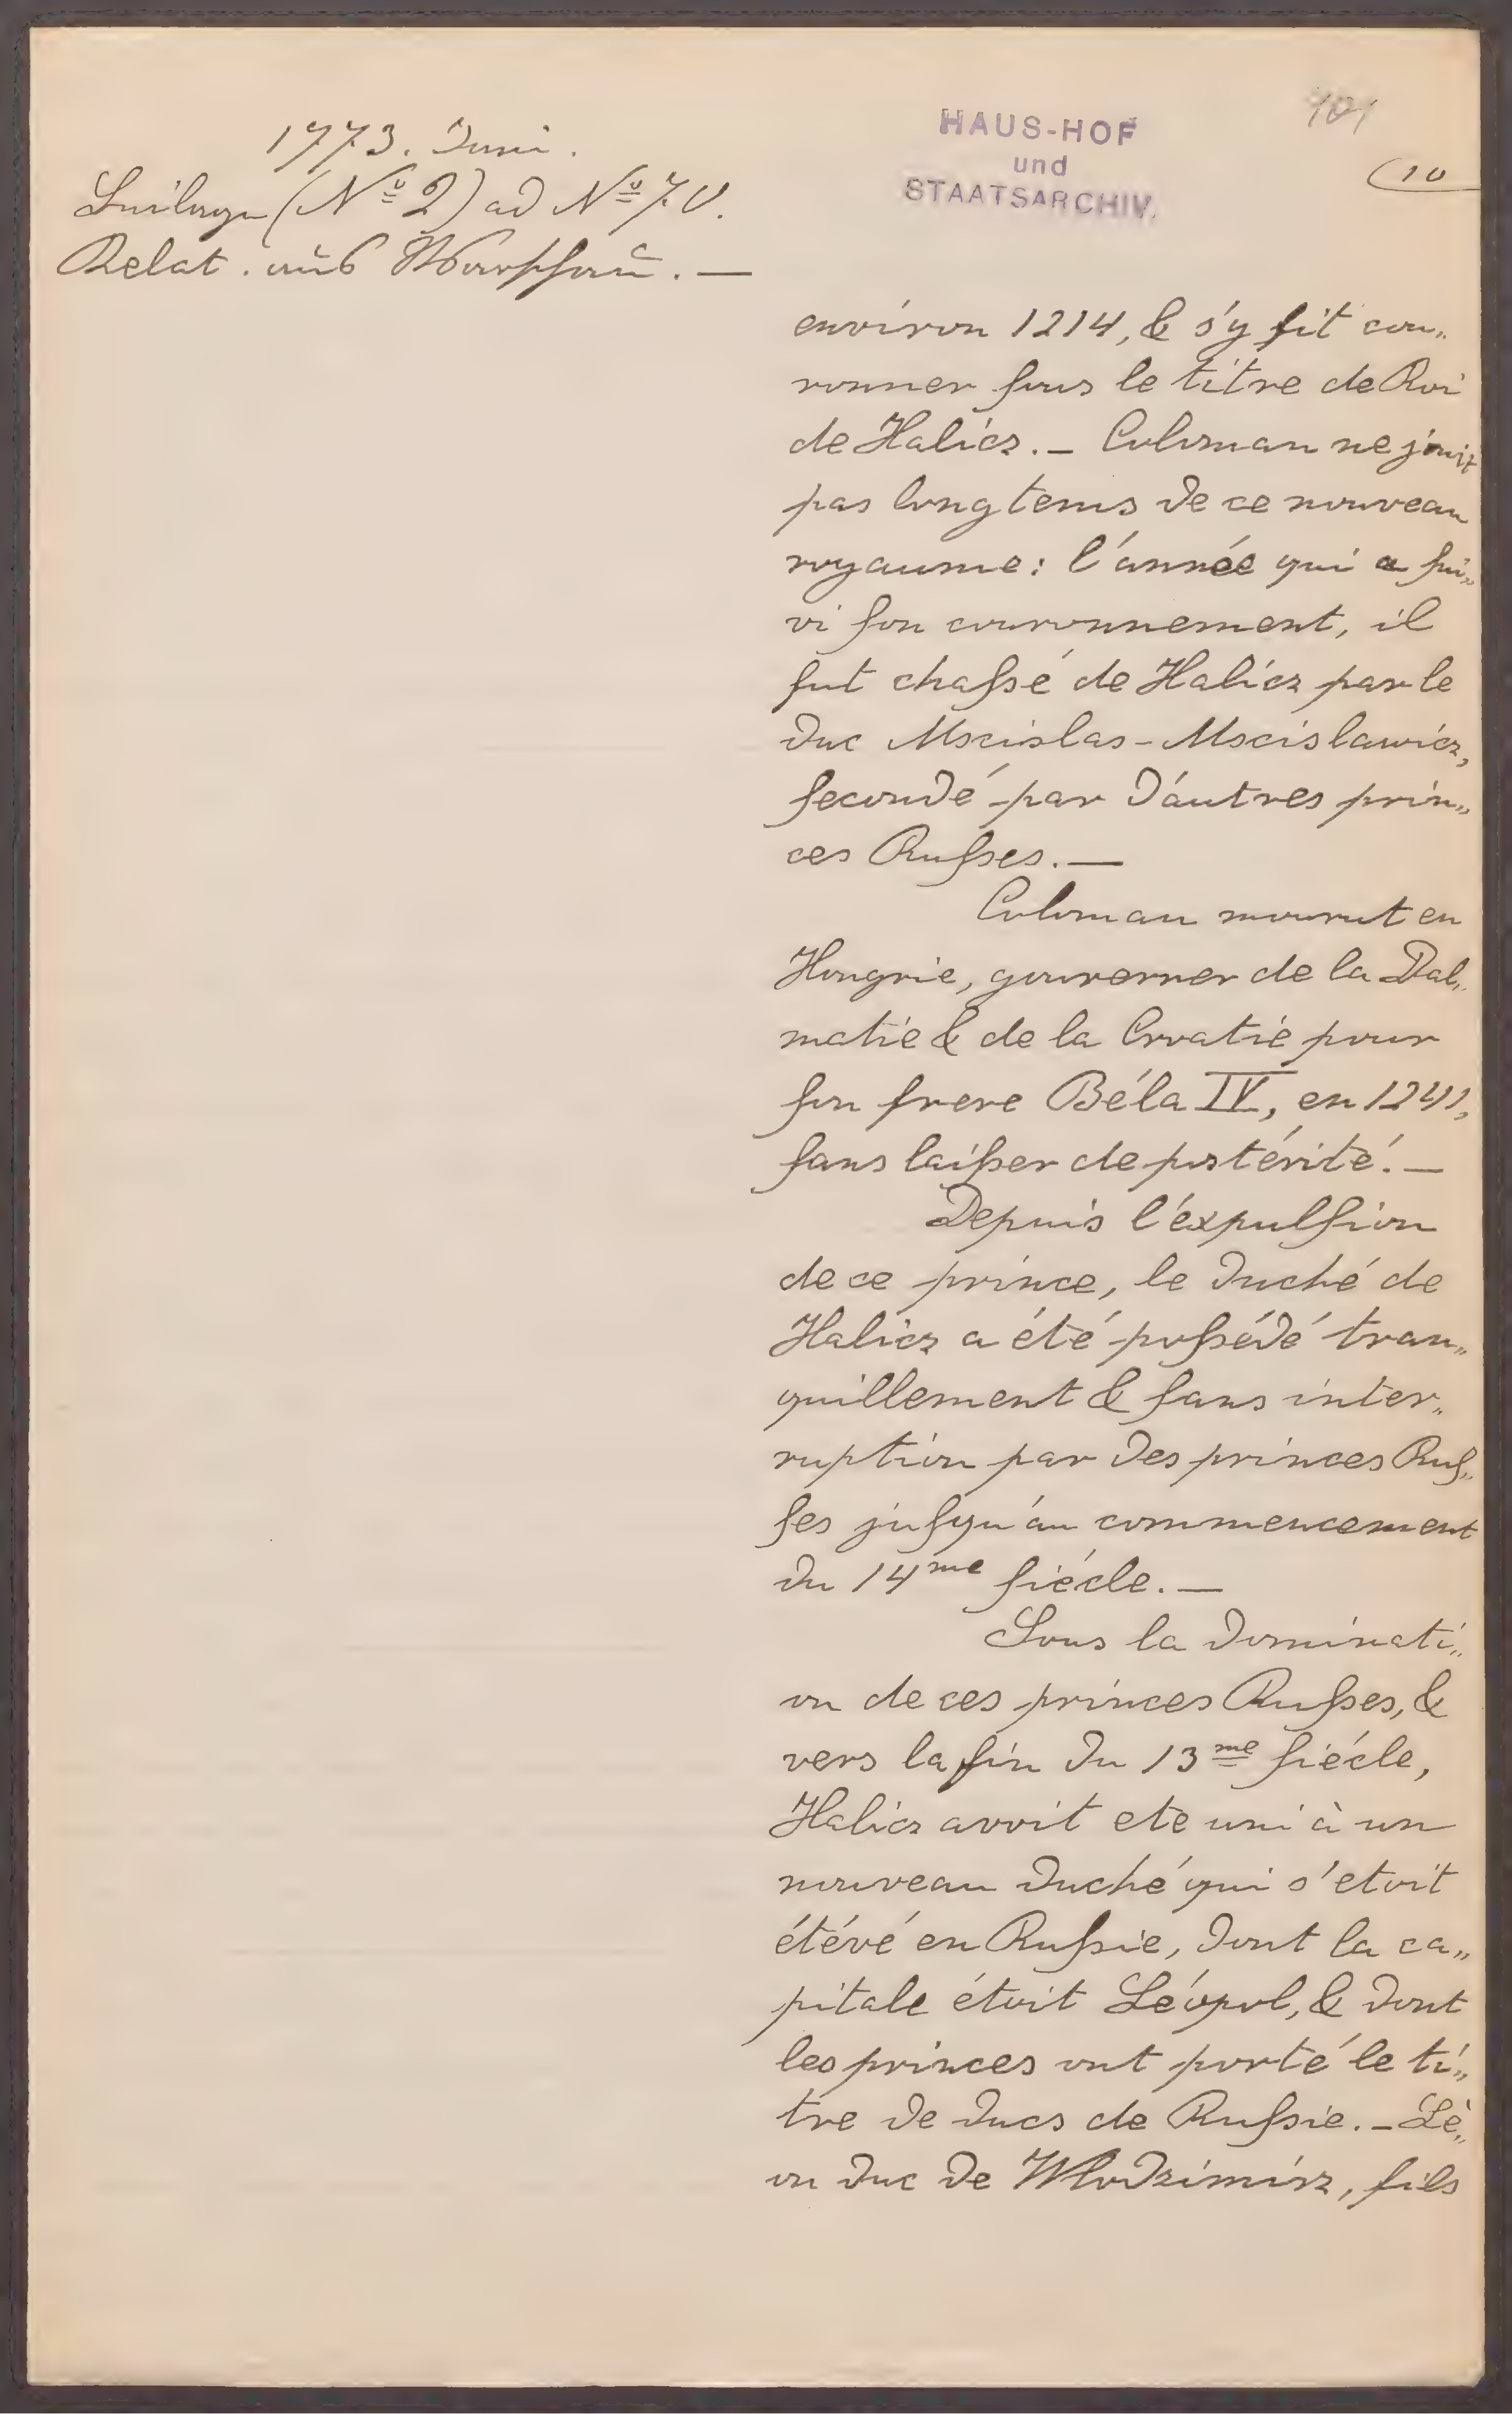 1773. Juni.
Beilage (Nº 2) ad Nº 70.
Relat. aus Warschau. —
HAUS-HOF
und
STAATSARCHIV.
101
(10
environ 1214, & s'y fit cou„
ronner sous le titre de Roi
de Halicz. — Coloman ne jouit
pas longtems de ce nouveau
royaume: l'année qui a sui„
vi son couronnement, il
fut chassé de Halicz par le
duc Mscislas-Mscislawicz,
secondé par d'autres prin„
ces Russes. —
Coloman mourut en
Hongrie, gouverner de la Dal„
matie & de la Croatie pour
son frere Béla IV, en 1241,
sans laisser de postérité. —
Depuis l'éxpulsion
de ce prince, le duché de
Halicz a été possédé tran„
quillement & sans inter„
ruption par des princes Rus„
ses jusqu'au commencement
du 14me siécle. —
Sous la dominati„
on de ces princes Russes, &
vers la fin du 13me siécle,
Halicz avoit ete uni à un
nouveau duché qui s'etoit
étévé en Russie, dont la ca„
pitale étoit Léopol, & dont
les princes ont porté le ti„
tre de ducs de Russie. — Lè„
on duc de Wlodzimirz, fils